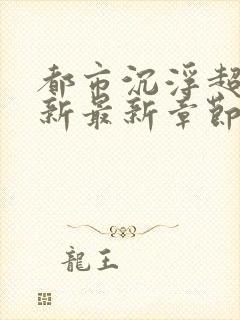 都市沉浮超
新最新章節
龍王